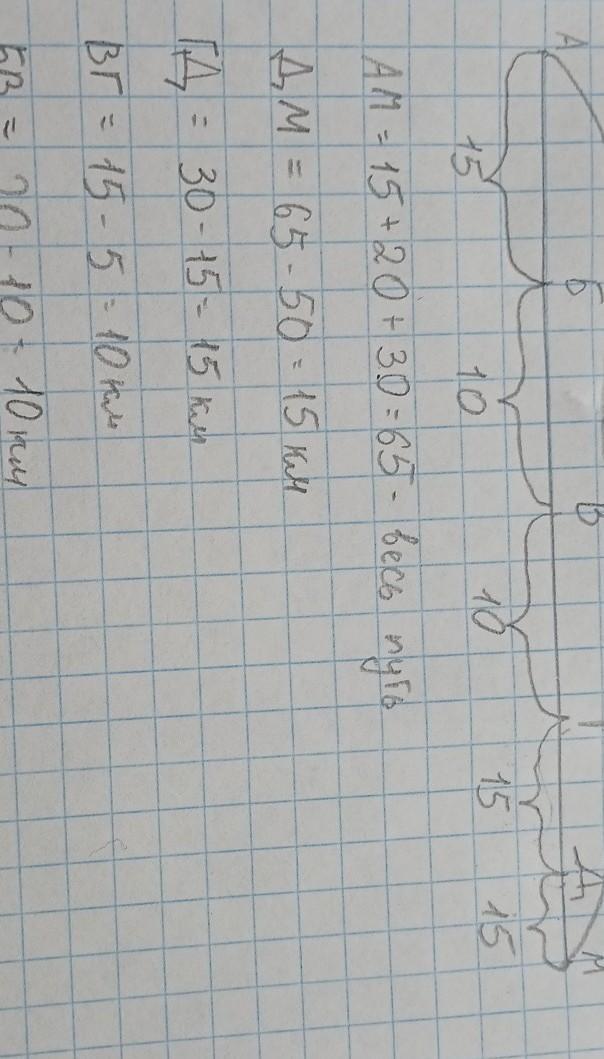 А Б В Г Д М
15 10 10 15 15
АМ = 15 + 20 + 30 = 65 - весь путь
ДМ = 65 - 50 = 15 км
ГД = 30 - 15 = 15 км
ВГ = 15 - 5 = 10 км
БВ = 20 - 10 = 10 км